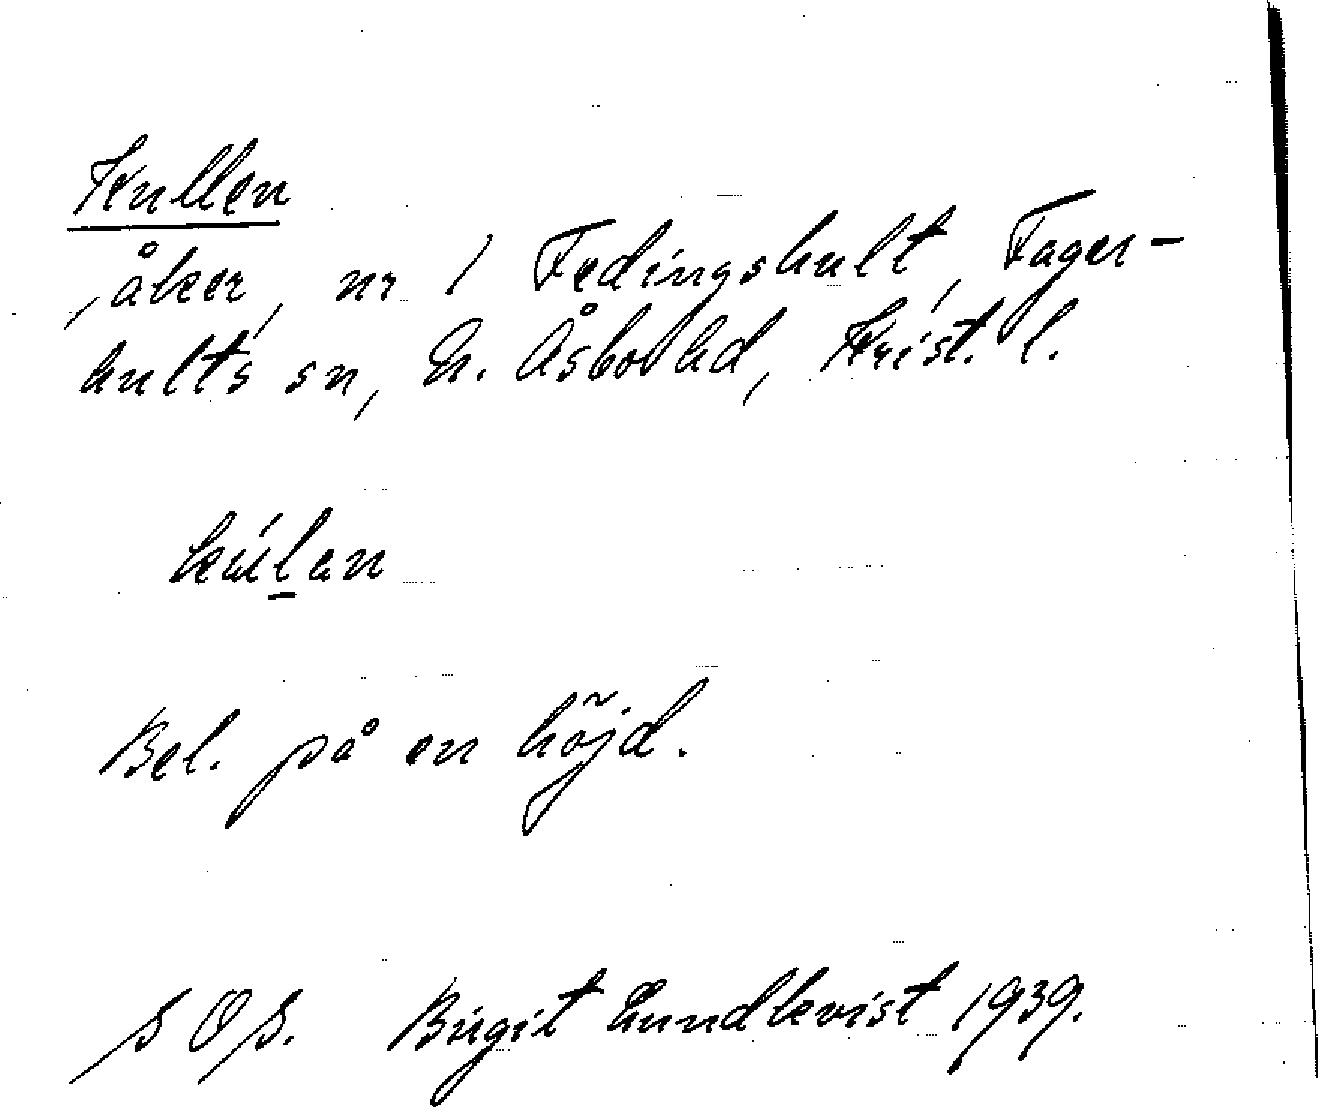 Kullen
, åker, nr 1 Fedingshult, Fager-
hults sn, N. Åsbo hd, Krist. l.
kúlan
Bel. på en höjd.
SOS. Birgit Lundkvist 1939.